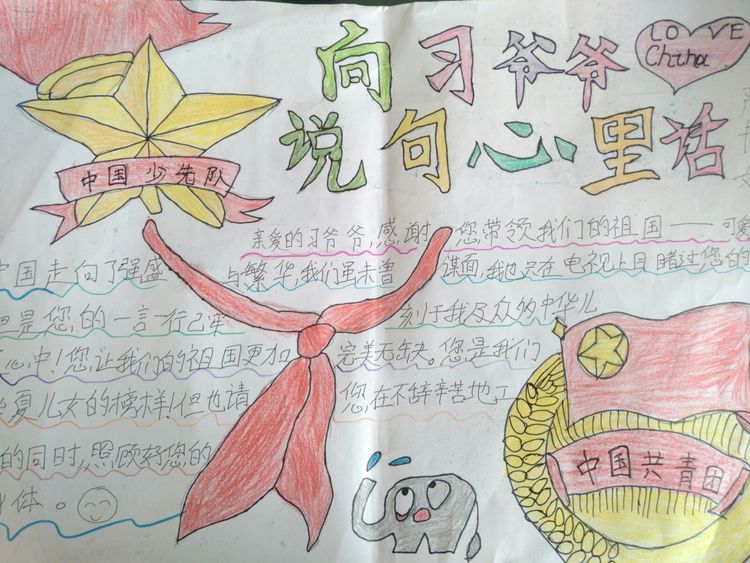 向习爷爷
LOVE
China
说句心里话
中国少先队
亲爱的习爷爷,感谢您带领我们的祖国——可爱
中国走向了强盛与繁华,我们虽未曾谋面,我也只在电视上目睹过您的
但是您的一言一行已深刻于我及众多中华儿
心中!您让我们的祖国更加完美无缺。您是我们
华夏儿女的榜样!但也请您,在不辞辛苦地工
的同时,照顾好您的
身体。
中国共青团